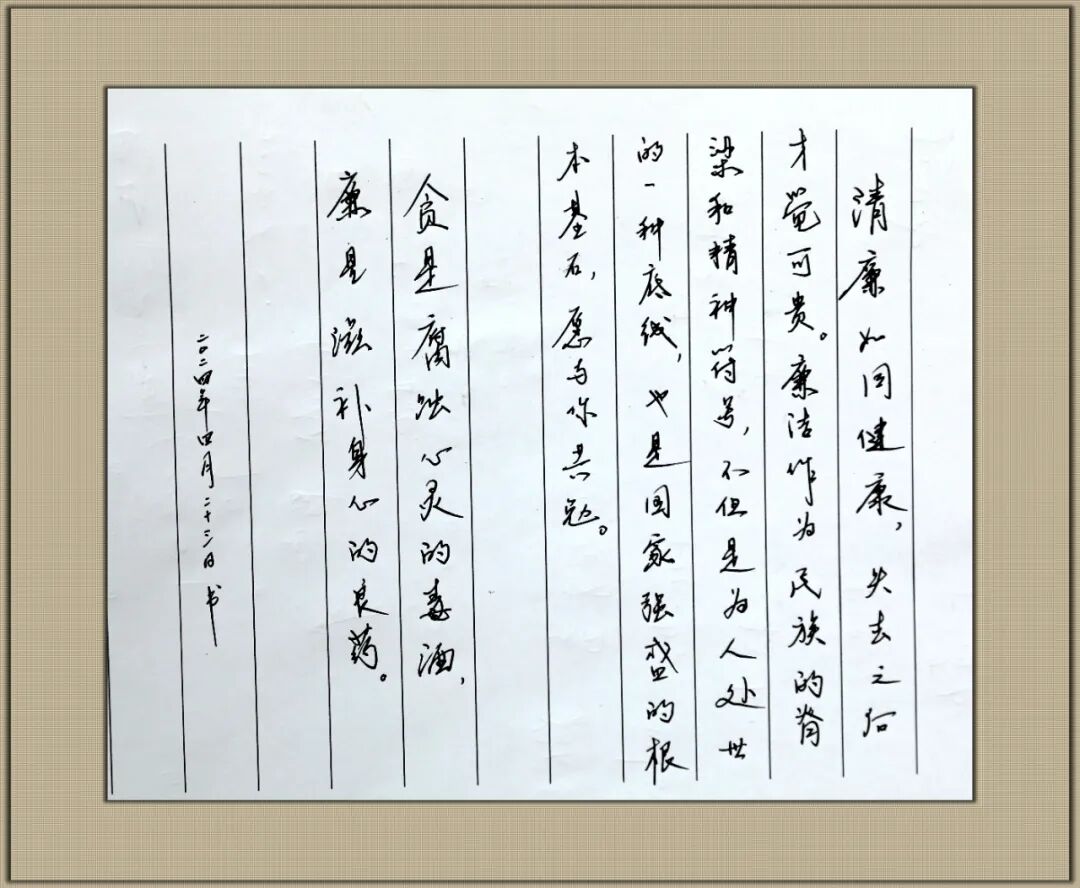 清廉如同健康，失去之后
才觉可贵。廉洁作为民族的脊
梁和精神符号，不但是为人处世
的一种底线，也是国家强盛的根
本基石，愿与你共勉。
贪是腐蚀心灵的毒酒，
廉是滋补身心的良药。
二〇二四年四月二十三日书